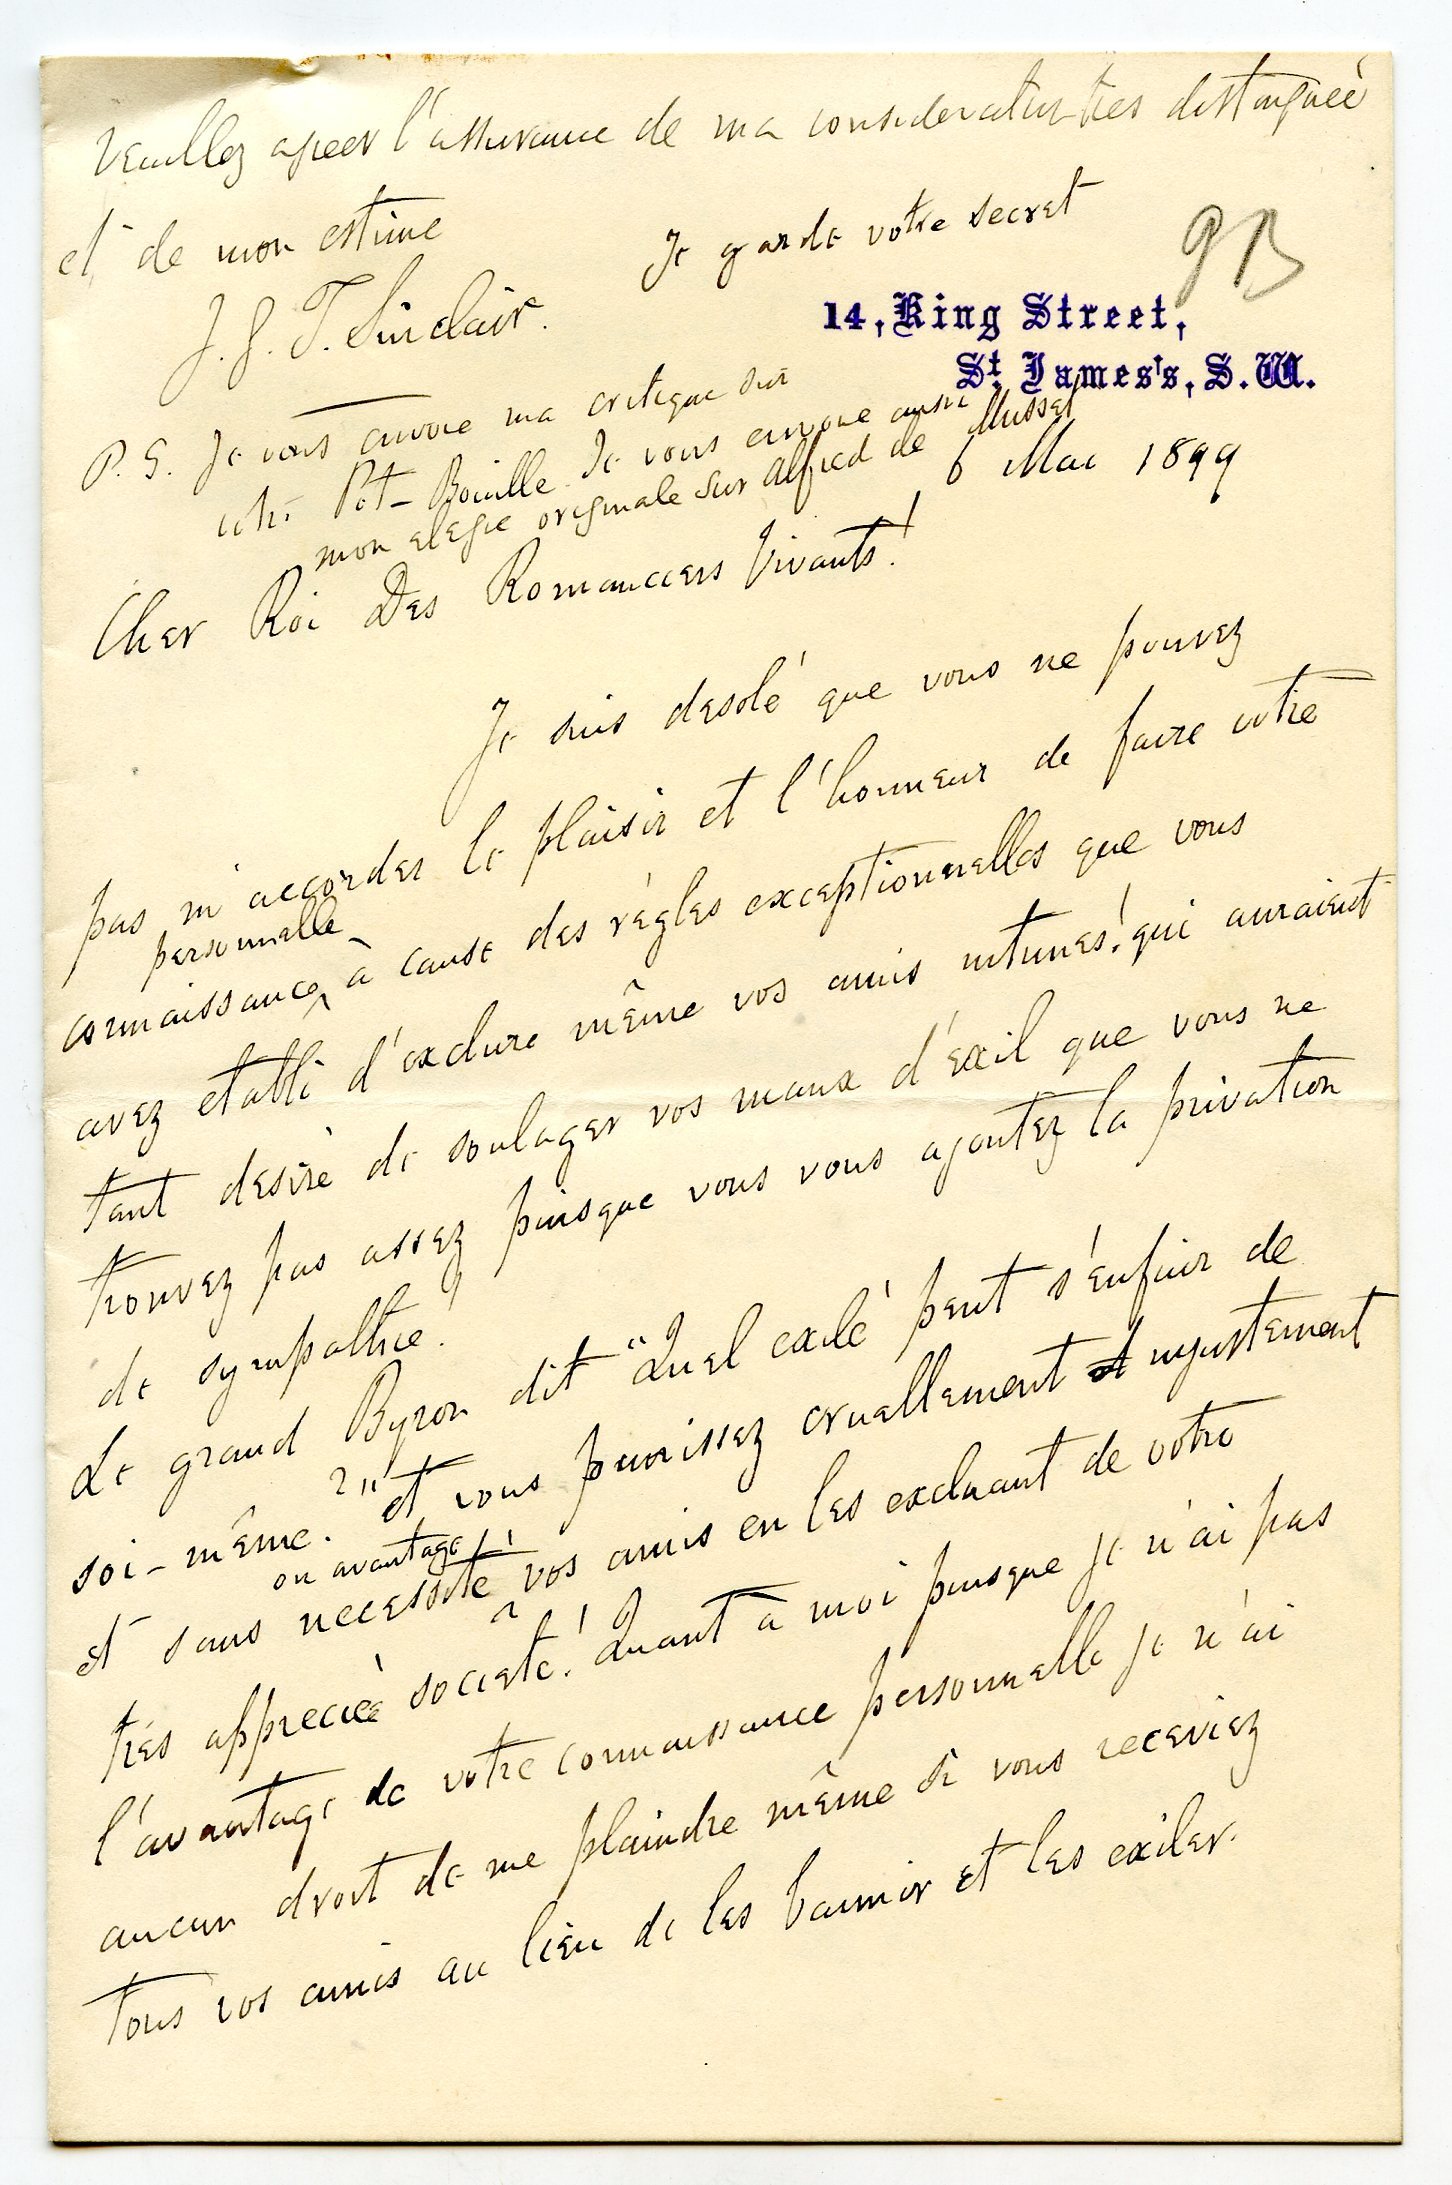 Veuillez agreer l'assurance de ma consideration tres distinguée
et de mon estime
Je garde votre secret
J. G. T. Sinclair.
PB
14, King Street,
St. James's, S.W.
P. S. Je vous envoie ma critique sur
votre Pot-Bouille. Je vous envoie aussi
mon elegie originale sur Alfred de Musset
6 Mai 1899
Cher Roi Des Romanciers Vivants!
Je suis desolé que vous ne pouvez
pas m'accorder le plaisir et l'honneur de faire votre
personnelle
connaissance, à cause des règles exceptionnelles que vous
avez etabli d'exclure même vos amis intimes! qui auraient
tant desiré de soulager vos maux d'éxil que vous ne
trouvez pas assez puisque vous vous ajoutez la privation
de sympathie!
Le grand Byron dit "Quel exilé peut s'énfuir de
soi-même. ?" et vous punissez cruellement et injustement
ou avantage
et sans necessité vos amis en les excluant de votre
très appreciée societé! Quant à moi puisque je n'ai pas
l'avantage de votre connaissance personnelle je n'ai
aucun droit de me plaindre même si vous receviez
tous vos amis au lieu de les bannir et les exiler.